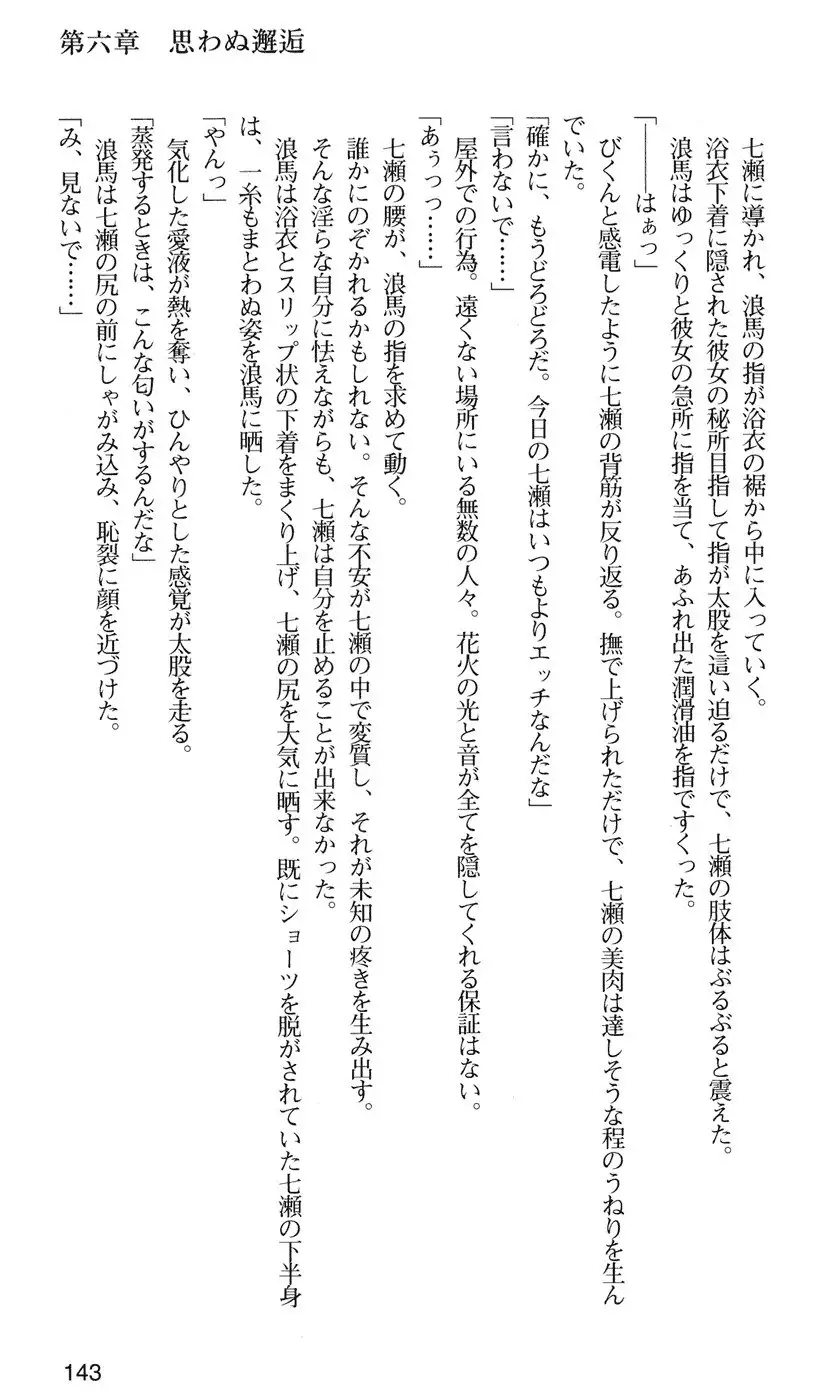 第六章　思わぬ邂逅
七瀬に導かれ、浪馬の指が浴衣の裾から中に入っていく。
浴衣下着に隠された彼女の秘所目指して指が太股を這い迫るだけで、七瀬の肢体はぶるぶると震えた。
浪馬はゆっくりと彼女の急所に指を当て、あふれ出た潤滑油を指ですくった。
「――はぁっ」
びくんと感電したように七瀬の背筋が反り返る。撫で上げられただけで、七瀬の美肉は達しそうな程のうねりを生ん
でいた。
「確かに、もうどろどろだ。今日の七瀬はいつもよりエッチなんだな」
「言わないで……」
屋外での行為。遠くない場所にいる無数の人々。花火の光と音が全てを隠してくれる保証はない。
「あぅっっ……」
七瀬の腰が、浪馬の指を求めて動く。
誰かにのぞかれるかもしれない。そんな不安が七瀬の中で変質し、それが未知の疼きを生み出す。
そんな淫らな自分に怯えながらも、七瀬は自分を止めることが出来なかった。
浪馬は浴衣とスリップ状の下着をまくり上げ、七瀬の尻を大気に晒す。既にショーツを脱がされていた七瀬の下半身
は、一糸もまとわぬ姿を浪馬に晒した。
「やんっ」
気化した愛液が熱を奪い、ひんやりとした感覚が太股を走る。
「蒸発するときは、こんな匂いがするんだな」
浪馬は七瀬の尻の前にしゃがみ込み、恥裂に顔を近づけた。
「み、見ないで……」
143